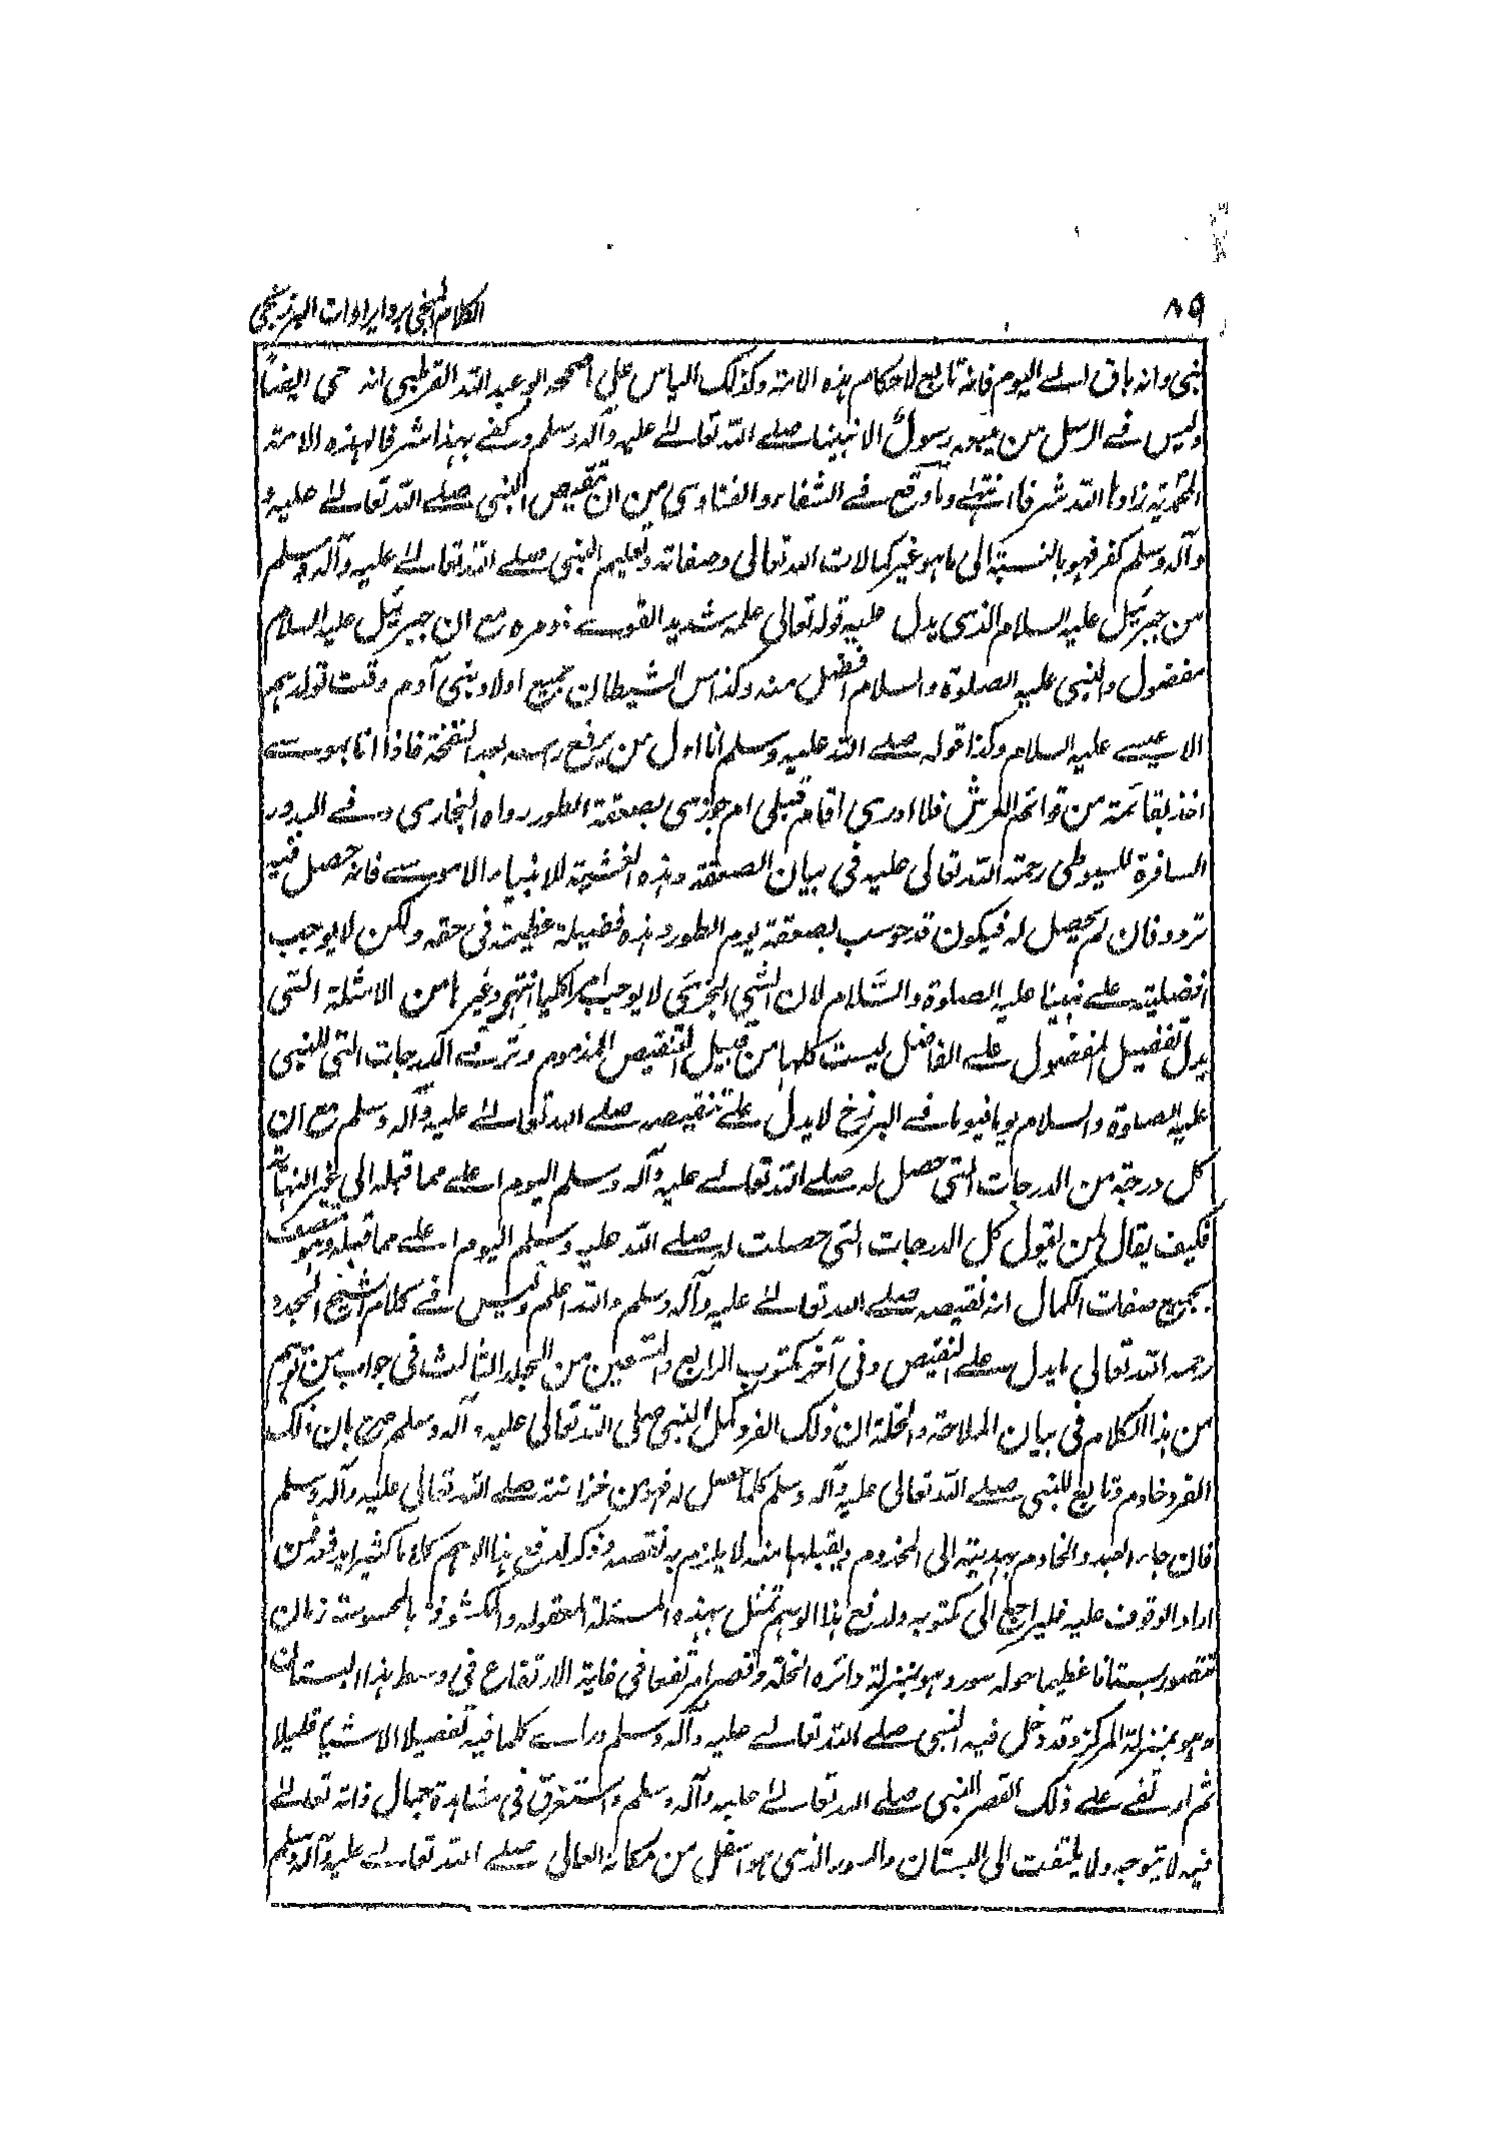 ٨٩
الكلام المنجي برد ايرادات البرزنجي
نبي وانه باق الے اليوم فانه تابع لاحكام هذه الامة وكذلك الياس على ما صححه ابو عبد الله القرطبي انه حي ايضاً
وليس فے الرسل من يتبعه رسول الا نبينا صلے الله تعالےٰ عليه وآله وسلم وكفے بهذا شرفا لهذه الامة
المحمدية زادها الله شرفا انتهے وما وقع فے الشفاء والفتاوى من ان تنقيص النبي صلے الله تعالےٰ عليه و
وآله وسلم كفر فهو بالنسبة الى ما هو غير كمالات الله تعالى وصفاته وتعليم النبي صلے الله تعالےٰ عليه وآله وسلم
من جبرئيل عليه السلام الذى يدل عليه قوله تعالى علمه شديد القوے ذو مره مع ان جبرئيل عليه السلام
مفضول والنبي عليه الصلوة والسلام افضل منه وكذا مس الشيطان جميع اولاد بني آدم وقت تولدهم
الا عيسے عليه السلام وكذا قوله صلے الله عليه وسلم انا اول من يرفع راسه بعد النفخة فاذا انا بموسے
اخذ بقائمة من قوائم العرش فلا ادرى افاق قبلى ام جوزى بصعقة الطور رواه البخارى وفے البدور
السافرة للسيوطى رحمة الله تعالى عليه في بيان الصعقة وهذه الغشية للانبياء الا موسے فانه حصل فيه
تردد فان لم يحصل له فيكون قد حوسب بصعقة يوم الطور وهذه فضيلة عظيمة في حقه ولكن لا يوجب
افضليته علے نبينا عليه الصلوة والسَّلام لان الشي الجزئي لا يوجب امرا كليا انتهى وغيرها من الامثلة التى
يدل تفضيل المفضول علے الفاضل ليست كلها من قبيل التنقيص المذموم وترقے الدرجات التى للنبى
عليه الصلوة والسلام يوما فيوما فے البرزخ لا يدل علے تنقيصه صلے الله تعالےٰ عليه وآله وسلم مع ان
كل درجة من الدرجات التى حصل له صلے الله تعالے عليه وآله وسلم اليوم اعلے مما قبله الى غير النهاية
فكيف يقال لمن يقول كل الدرجات التى حصلت له صلے الله عليه وسلم اليوم اعلے مما قبله وهو متصف
بجميع صفات الكمال انه نقيصه صلے الله تعالےٰ عليه وآله وسلم والله اعلم وليس فے كلام الشيخ المجدد
رحمه الله تعالى ما يدل علے النقيص وفي آخر مكتوب الرابع والتسعين من المجلد الثالث في جواب من توهم
من هذا الكلام في بيان الملاحة والخلة ان ذلك الفرد كمل النبي صلى الله تعالى عليه وآله وسلم صرح بان ذلك
الفرد خادم وتابع للنبي صلے الله تعالى عليه وآله وسلم كلما حصل له فهو من خزائنه صلے الله تعالى عليه وآله وسلم
فان جاء العبد والخادم بهدية الى المخدوم ويقبلها منه لا يلزم به نقصه وذكر لدفع هذا الوهم كلاما كثيرا يدفعه فمن
اراد الوقوف عليه فليراجع الى مكتوبه ولدفع هذا الوهم تمثل بهذه المسئلة المعقوله والمكشوفة بالمحسوسة زمان
تتصور بستانا عظيما حوله سور وهو بمنزلة دائره الخلة وقصرا مرتفعا في غاية الارتفاع في وسط هذا البستان
وهو بمنزلة المركز وقد دخل فيه النبي صلے الله تعالے عليه وآله وسلم وراے كلما فيه تفصيلا الا شيئا قليلا
ثم ارتقے علے ذلك القصر النبي صلے الله تعالےٰ عليه وآله وسلم واستغرق في مشاهدة جمال ذاته تعالےٰ
فيه لا يتوجه ولا يلتفت الى البستان والسور الذى هو اسفل من مكانه العالى صلے الله تعالے عليه وآله وسلم